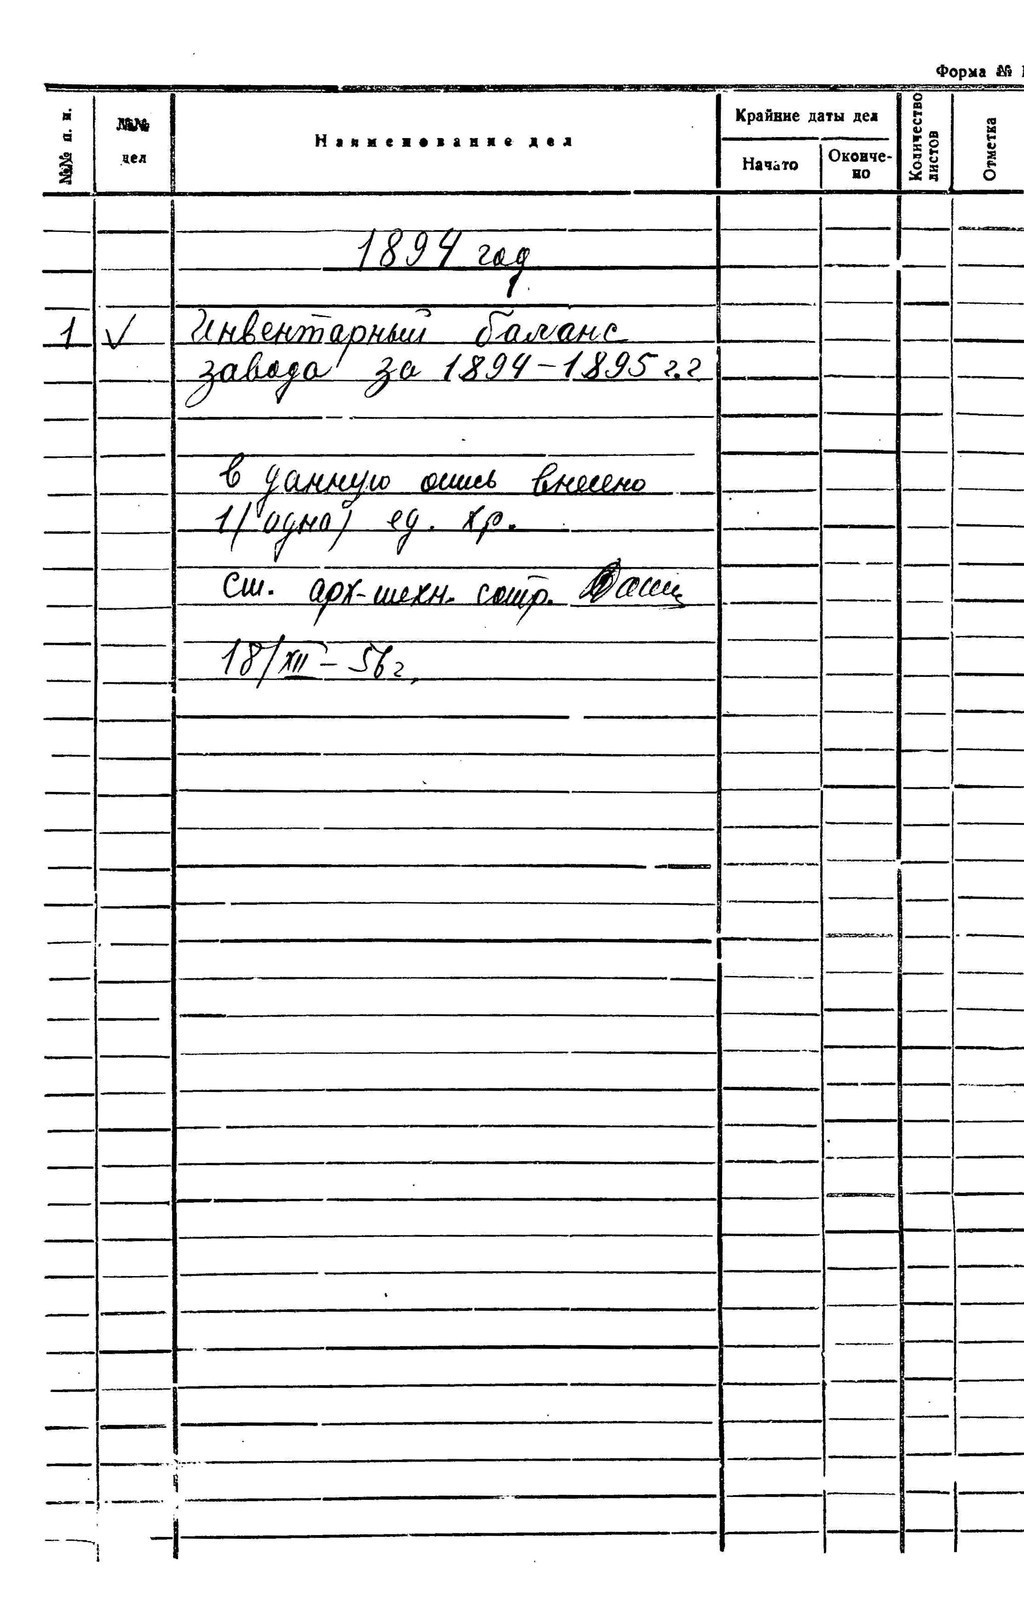 Форма №
№№ п. п.
№№ дел
Наименование дел
Крайние даты дел
Начато
Окончено
Количество листов
Отметка
1894 год
1 √ Инвентарный баланс
завода за 1894-1895 г.г
В данную опись внесено
1/одна/ ед. хр.
Ст. арх-техн. сотр.
18/XII - 56 г.